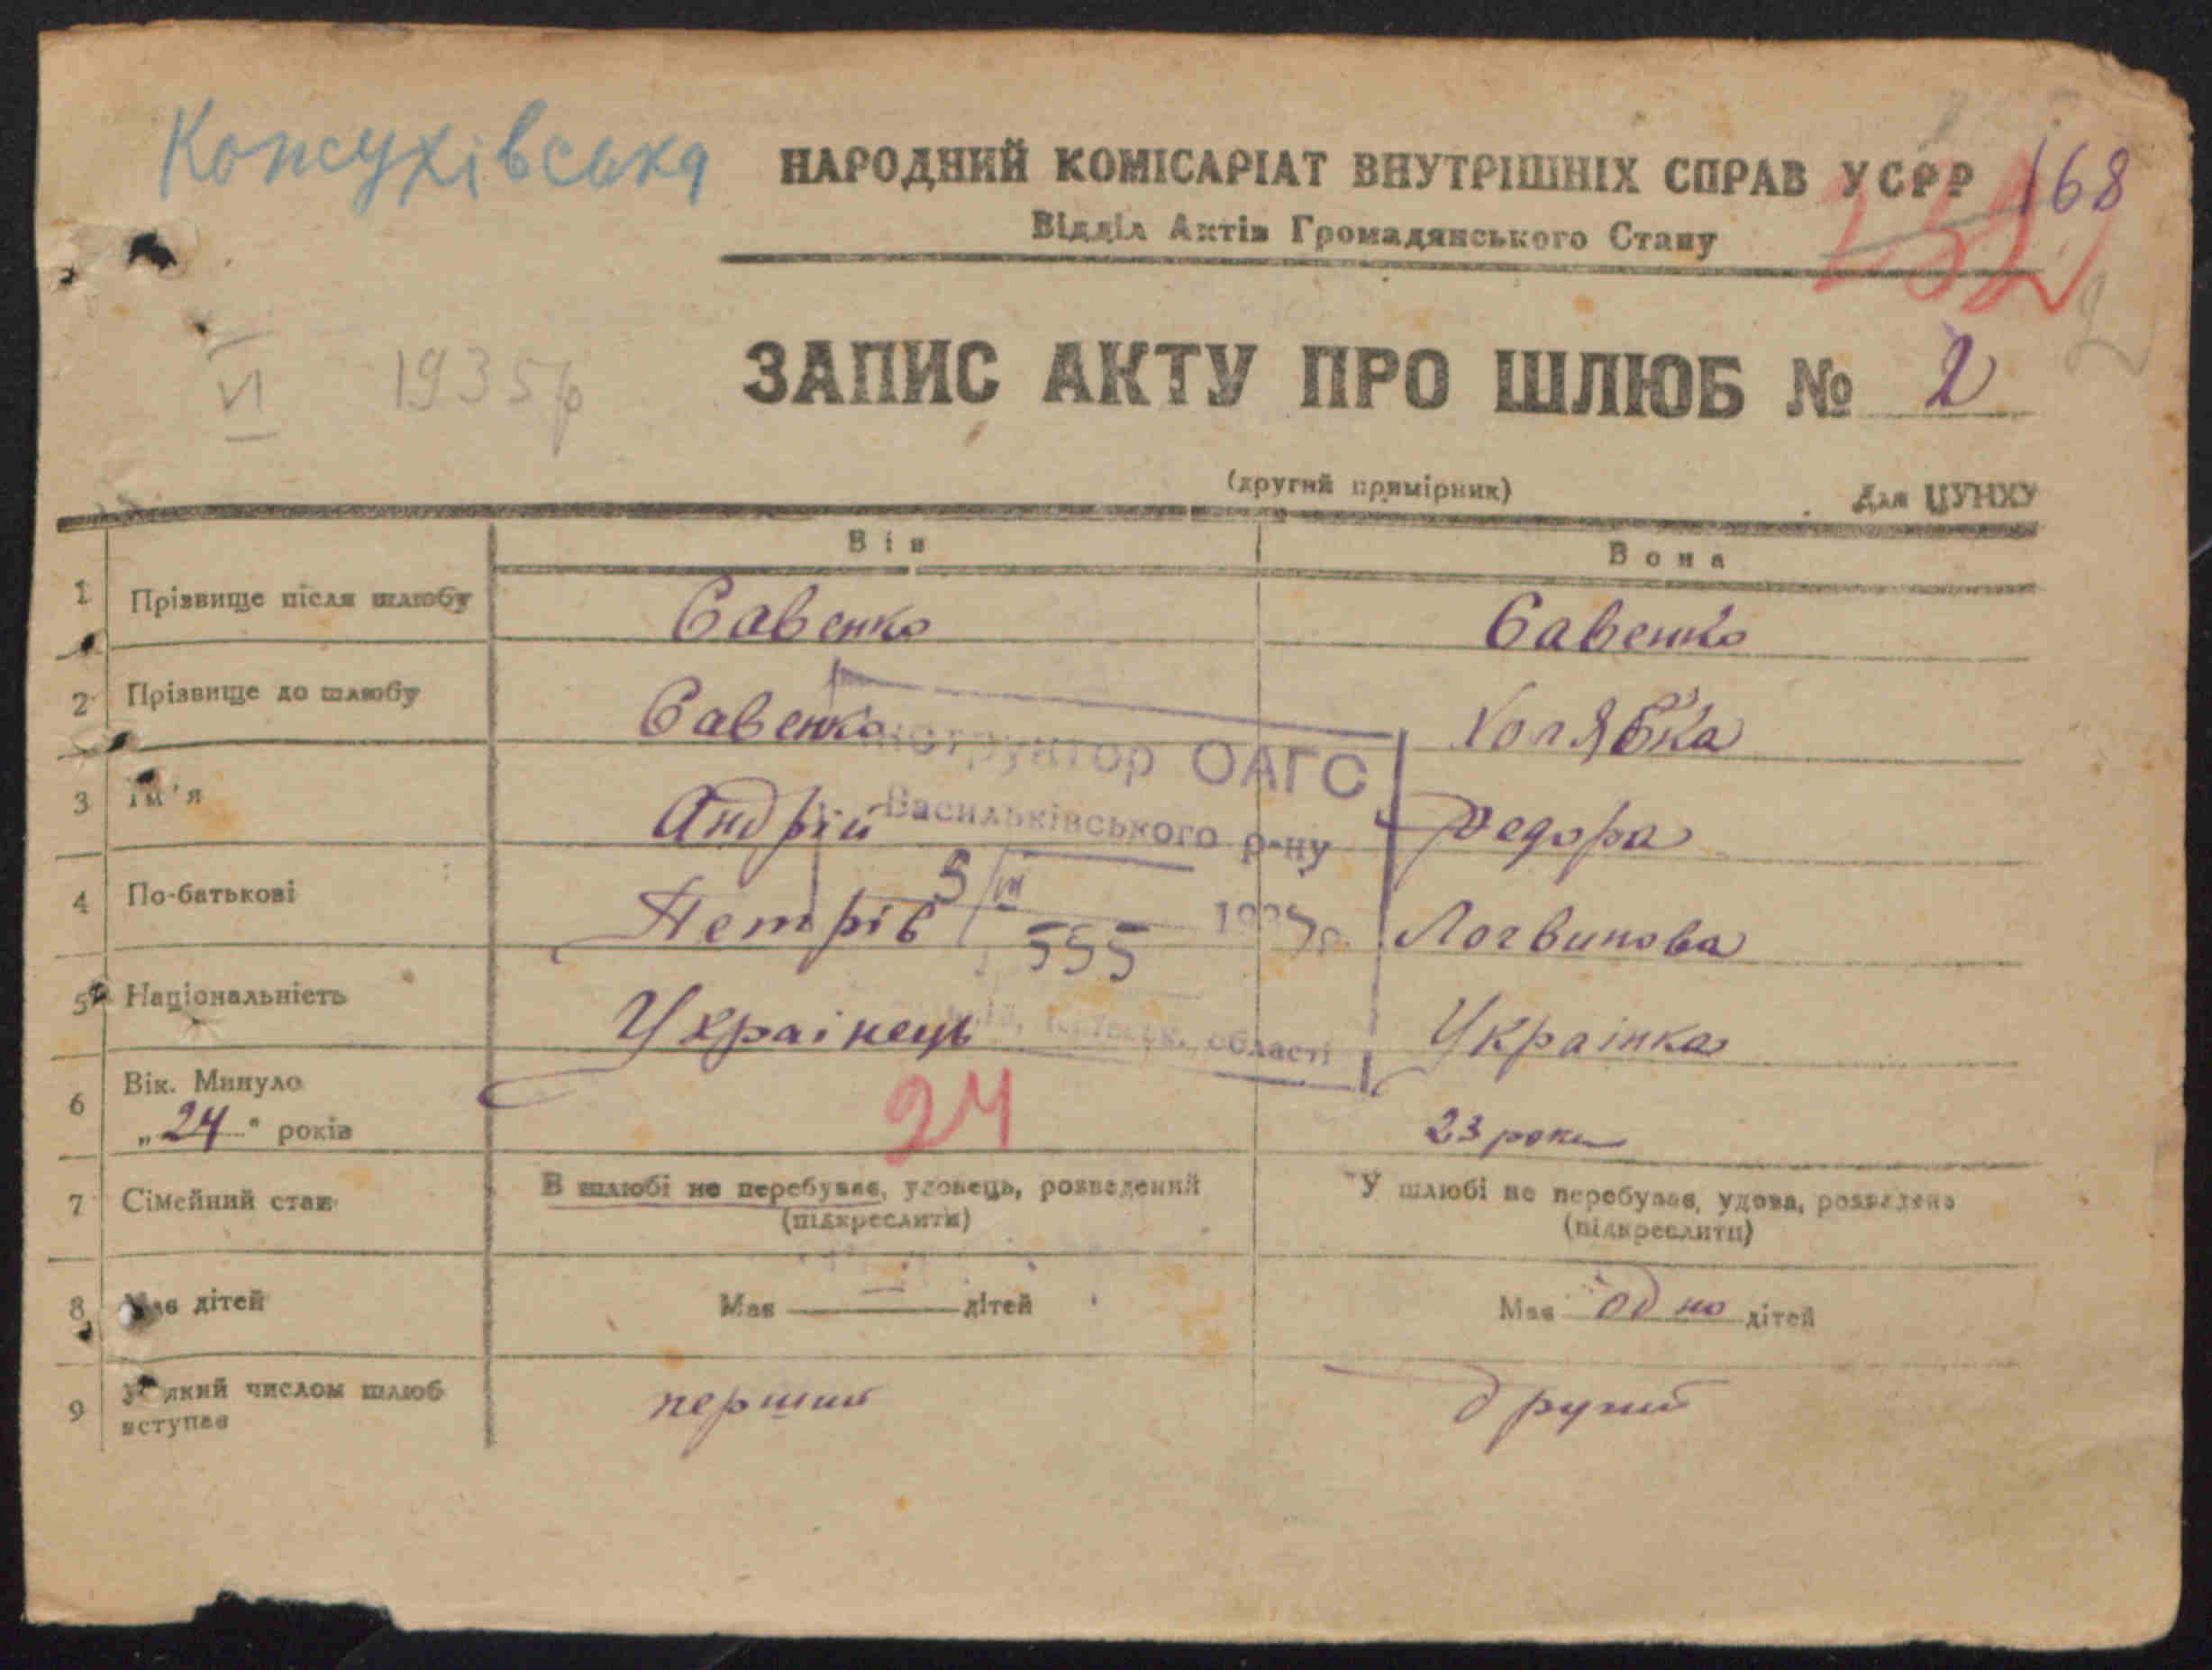 Кожухівська
НАРОДНИЙ КОМІСАРІАТ ВНУТРІШНІХ СПРАВ УСРР
168
Відділ Актів Громадянського Стану
VI 1935р
ЗАПИС АКТУ ПРО ШЛЮБ № 2
2
(другий примірник)
Для ЦУНХУ
Він
Вона
1 Прізвище після шлюбу Савенко Савенко
2 Прізвище до шлюбу Савенко Холябка
Інструктор ОАГС
3 Ім'я Андрій Федора
Васильківського р-ну
5/III 1935р.
4 По-батькові Петрів Логвинова
555
5 Національність Українець Українка
області
6 Вік. Минуло
„24" років 24 23 роки
7 Сімейний стан В шлюбі не перебував, удовець, розведений У шлюбі не перебував, удова, розведена
(підкреслити) (підкреслити)
8 Має дітей Має — дітей Має одно дітей
9 У який числом шлюб
вступає перший другий